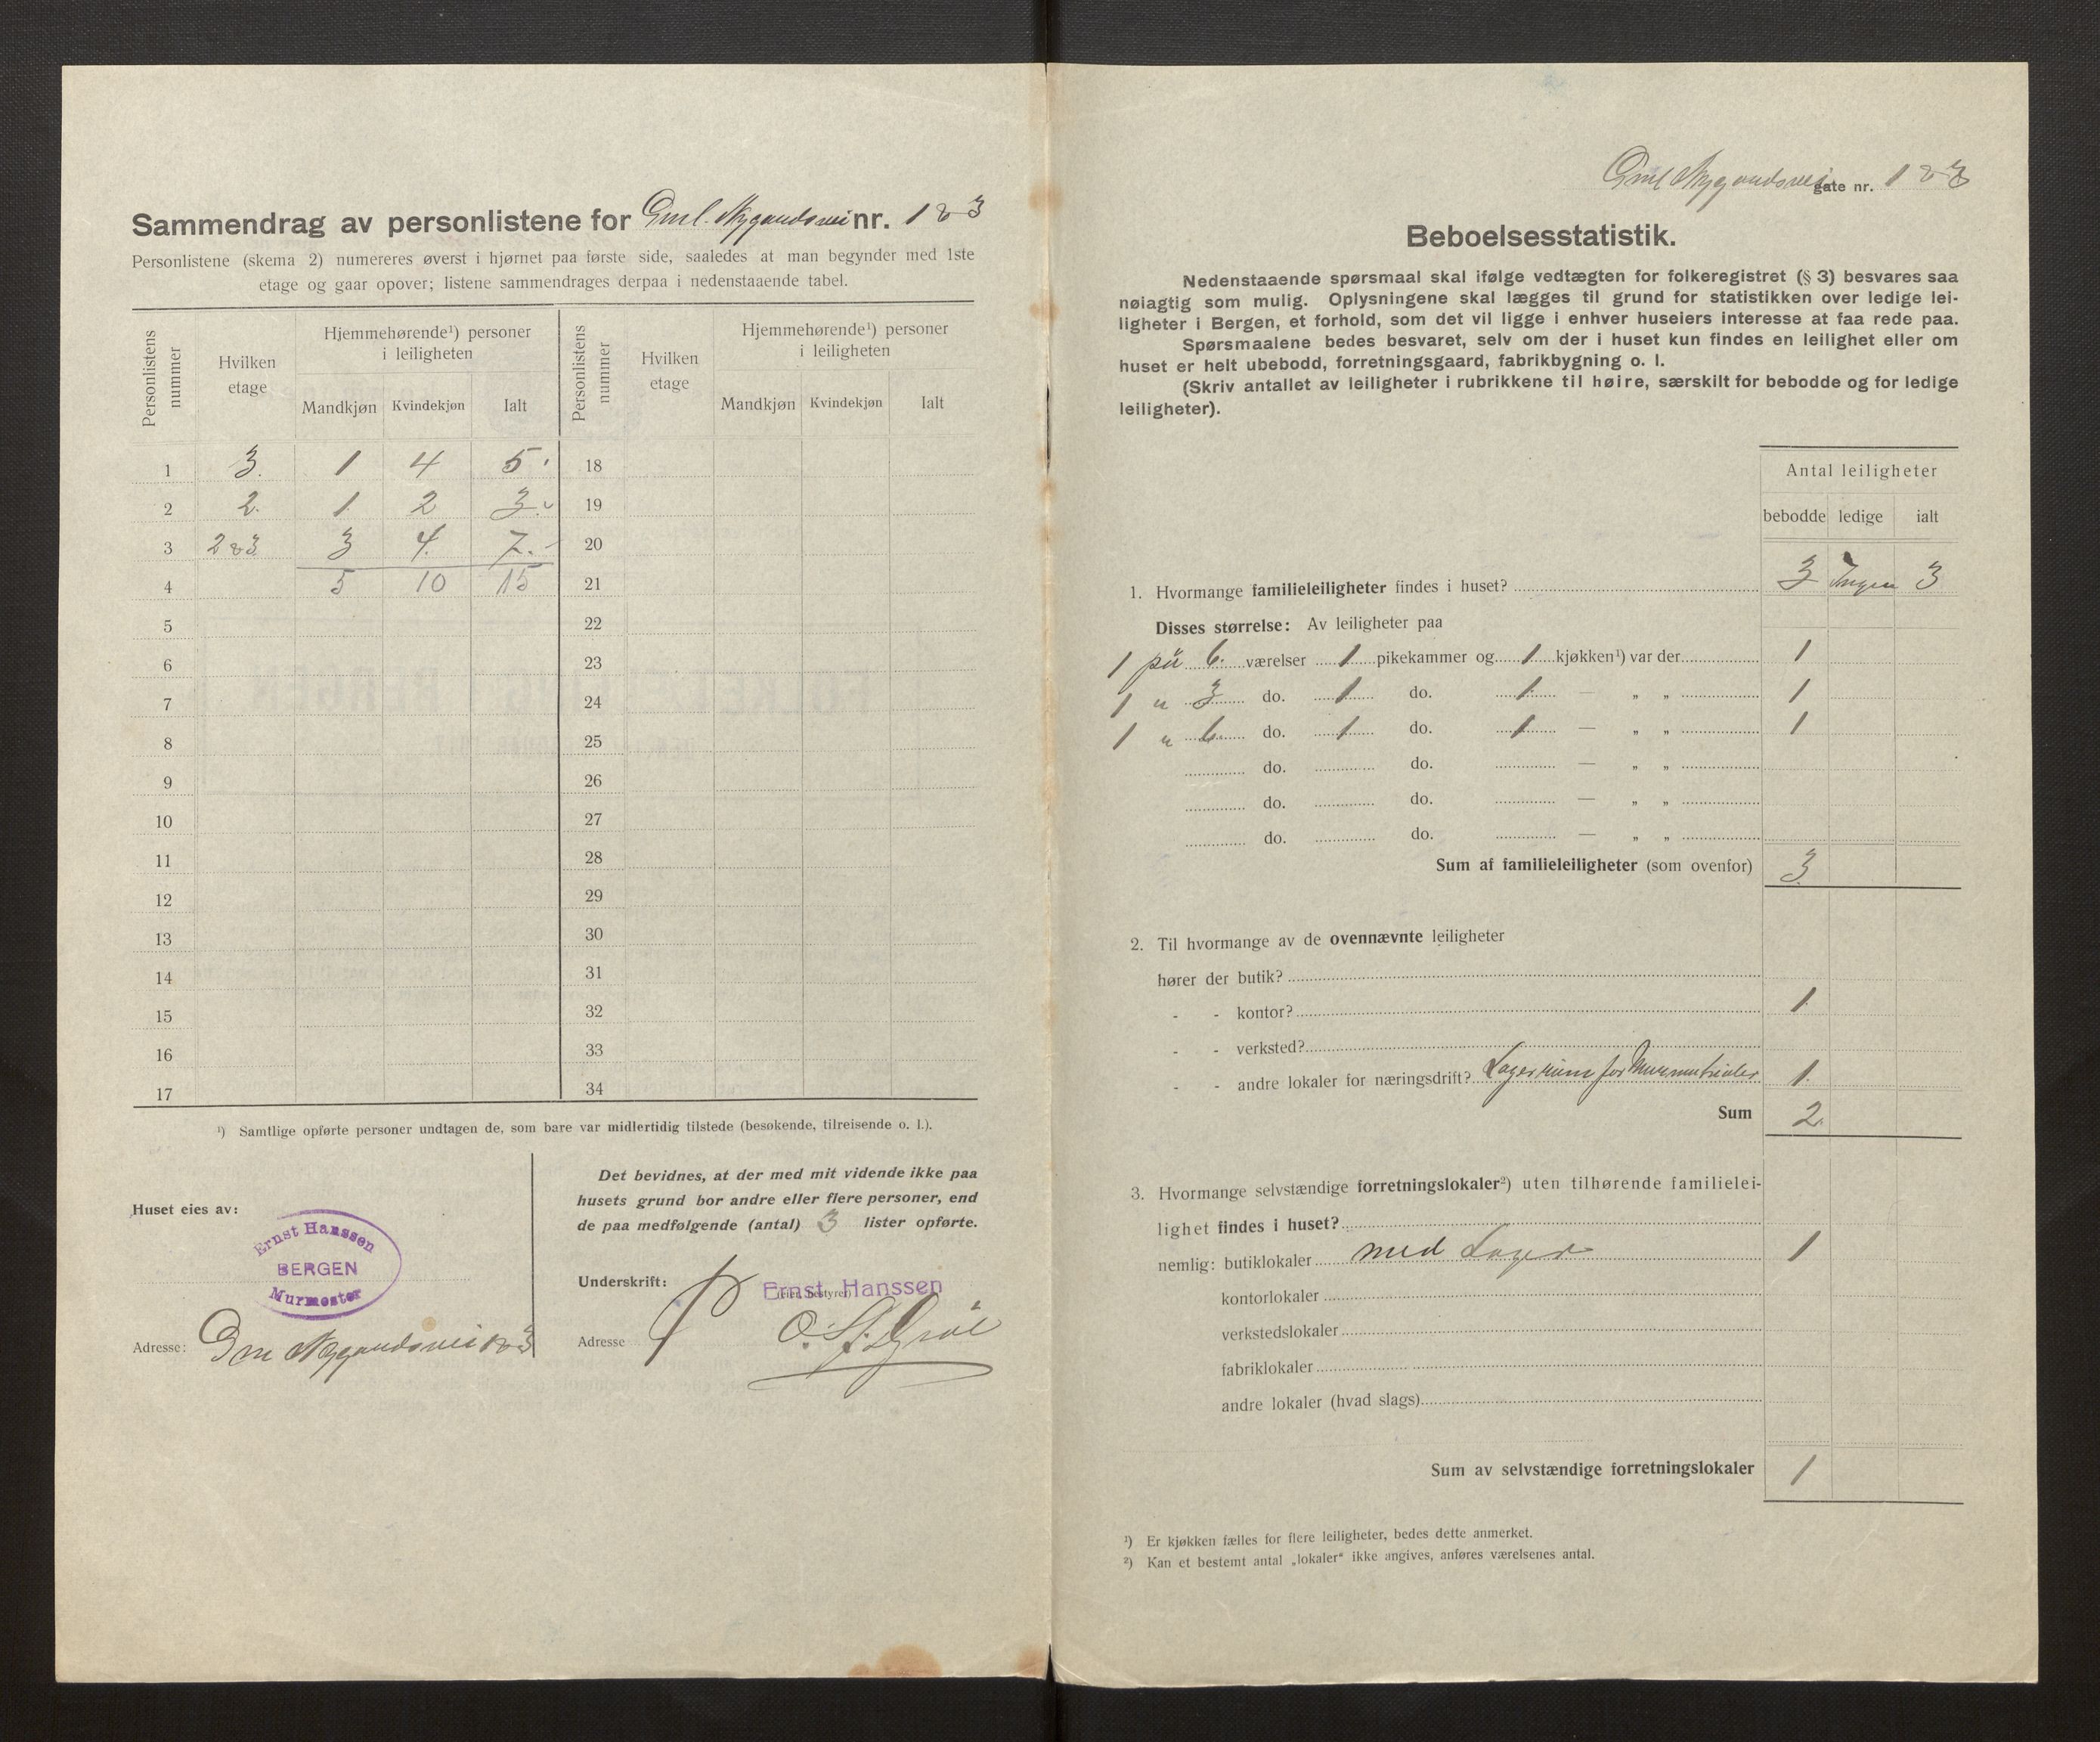 Sammendrag av personlistene for Gml. Nygaardsvei nr. 1 & 3
Personlistene (skema 2) numereres øverst i hjørnet paa første side, saaledes at man begynder med 1ste
etage og gaar opover; listene sammendrages derpaa i nedenstaaende tabel.
Personlistens nummer
Hvilken etage
Hjemmehørende¹) personer i leiligheten
Mandkjøn Kvindekjøn Ialt
Personlistens nummer
Hvilken etage
Hjemmehørende¹) personer i leiligheten
Mandkjøn Kvindekjøn Ialt
1 3. 1 4 5 18
2 2. 1 2 3 19
3 2 & 3 3 4. 7. 20
4 5 10 15 21
5 22
6 23
7 24
8 25
9 26
10 27
11 28
12 29
13 30
14 31
15 32
16 33
17 34
¹) Samtlige opførte personer undtagen de, som bare var midlertidig tilstede (besøkende, tilreisende o. l.).
Huset eies av:
Ernst Hanssen
BERGEN
Murmester
Adresse: Gm Nygaardsvei 1 & 3
Det bevidnes, at der med mit vidende ikke paa
husets grund bor andre eller flere personer, end
de paa medfølgende (antal) 3 lister opførte.
Underskrift: Ernst Hanssen
(Eier, bestyrer)
Adresse
Gml Nygaardsvei gate nr. 1 & 3
Beboelsesstatistik.
Nedenstaaende spørsmaal skal ifølge vedtægten for folkeregistret (§ 3) besvares saa
nøiagtig som mulig. Oplysningene skal lægges til grund for statistikken over ledige lei-
ligheter i Bergen, et forhold, som det vil ligge i enhver huseiers interesse at faa rede paa.
Spørsmaalene bedes besvaret, selv om der i huset kun findes en leilighet eller om
huset er helt ubebodd, forretningsgaard, fabrikbygning o. l.
(Skriv antallet av leiligheter i rubrikkene til høire, særskilt for bebodde og for ledige
leiligheter).
Antal leiligheter
bebodde ledige ialt
1. Hvormange familieleiligheter findes i huset? 3 Ingen 3
Disses størrelse: Av leiligheter paa
1 på 6. værelser 1 pikekammer og 1 kjøkken¹) var der 1
1 " 3 do. 1 do. 1 — „ „ 1
1 " 6. do. 1 do. 1 — „ „ 1
do. do. — „ „
do. do. — „ „
do. do. — „ „
Sum af familieleiligheter (som ovenfor) 3
2. Til hvormange av de ovennævnte leiligheter
hører der butik?
- - kontor? 1
- - verksted?
- - andre lokaler for næringsdrift? Lagerrum for Murmatrialer 1.
Sum 2.
3. Hvormange selvstændige forretningslokaler²) uten tilhørende familielei-
lighet findes i huset?
nemlig: butiklokaler med Lager 1
kontorlokaler
verkstedslokaler
fabriklokaler
andre lokaler (hvad slags)
Sum av selvstændige forretningslokaler 1
¹) Er kjøkken fælles for flere leiligheter, bedes dette anmerket.
²) Kan et bestemt antal „lokaler“ ikke angives, anføres værelsenes antal.